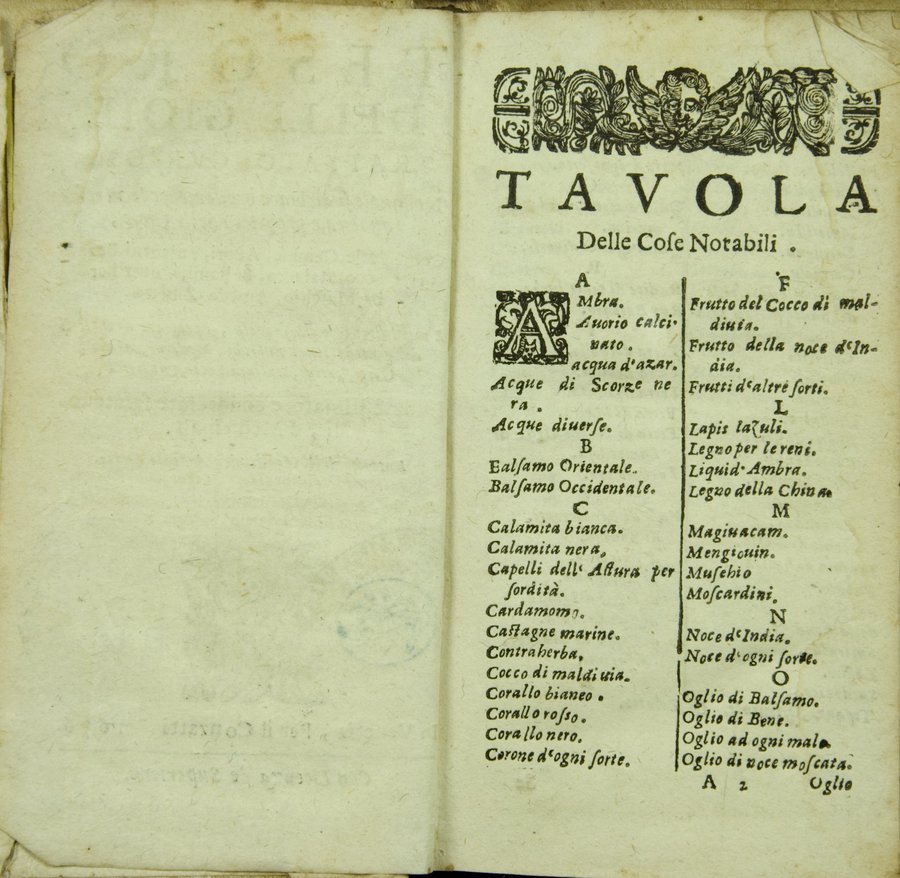 TAVOLA
Delle Coſe Notabili .
A
AMbra.
Auorio calci-
nato .
acqua d'azar.
Acque di Scorze ne
ra .
Acque diuerſe.
B
Balſamo Orientale.
Balſamo Occidentale.
C
Calamita bianca.
Calamita nera,
Capelli dell' Aſtura per
ſordità.
Cardamomo.
Caſtagne marine.
Contraherba,
Cocco di maldiuia.
Corallo bianeo .
Corallo roſſo.
Corallo nero.
Corone d'ogni ſorte.
F
Frutto del Cocco di mal-
diuia.
Frutto della noce d'In-
dia.
Frutti d'altre ſorti.
L
Lapis lazuli.
Legno per le reni.
Liquid' Ambra.
Legno della China.
M
Magiuacam.
Mengiouin.
Muſchio
Moſcardini.
N
Noce d'India.
Noce d'ogni ſorte.
O
Oglio di Balſamo.
Oglio di Bene.
Oglio ad ogni male
Oglio di noce moſcata.
A 2 Oglio